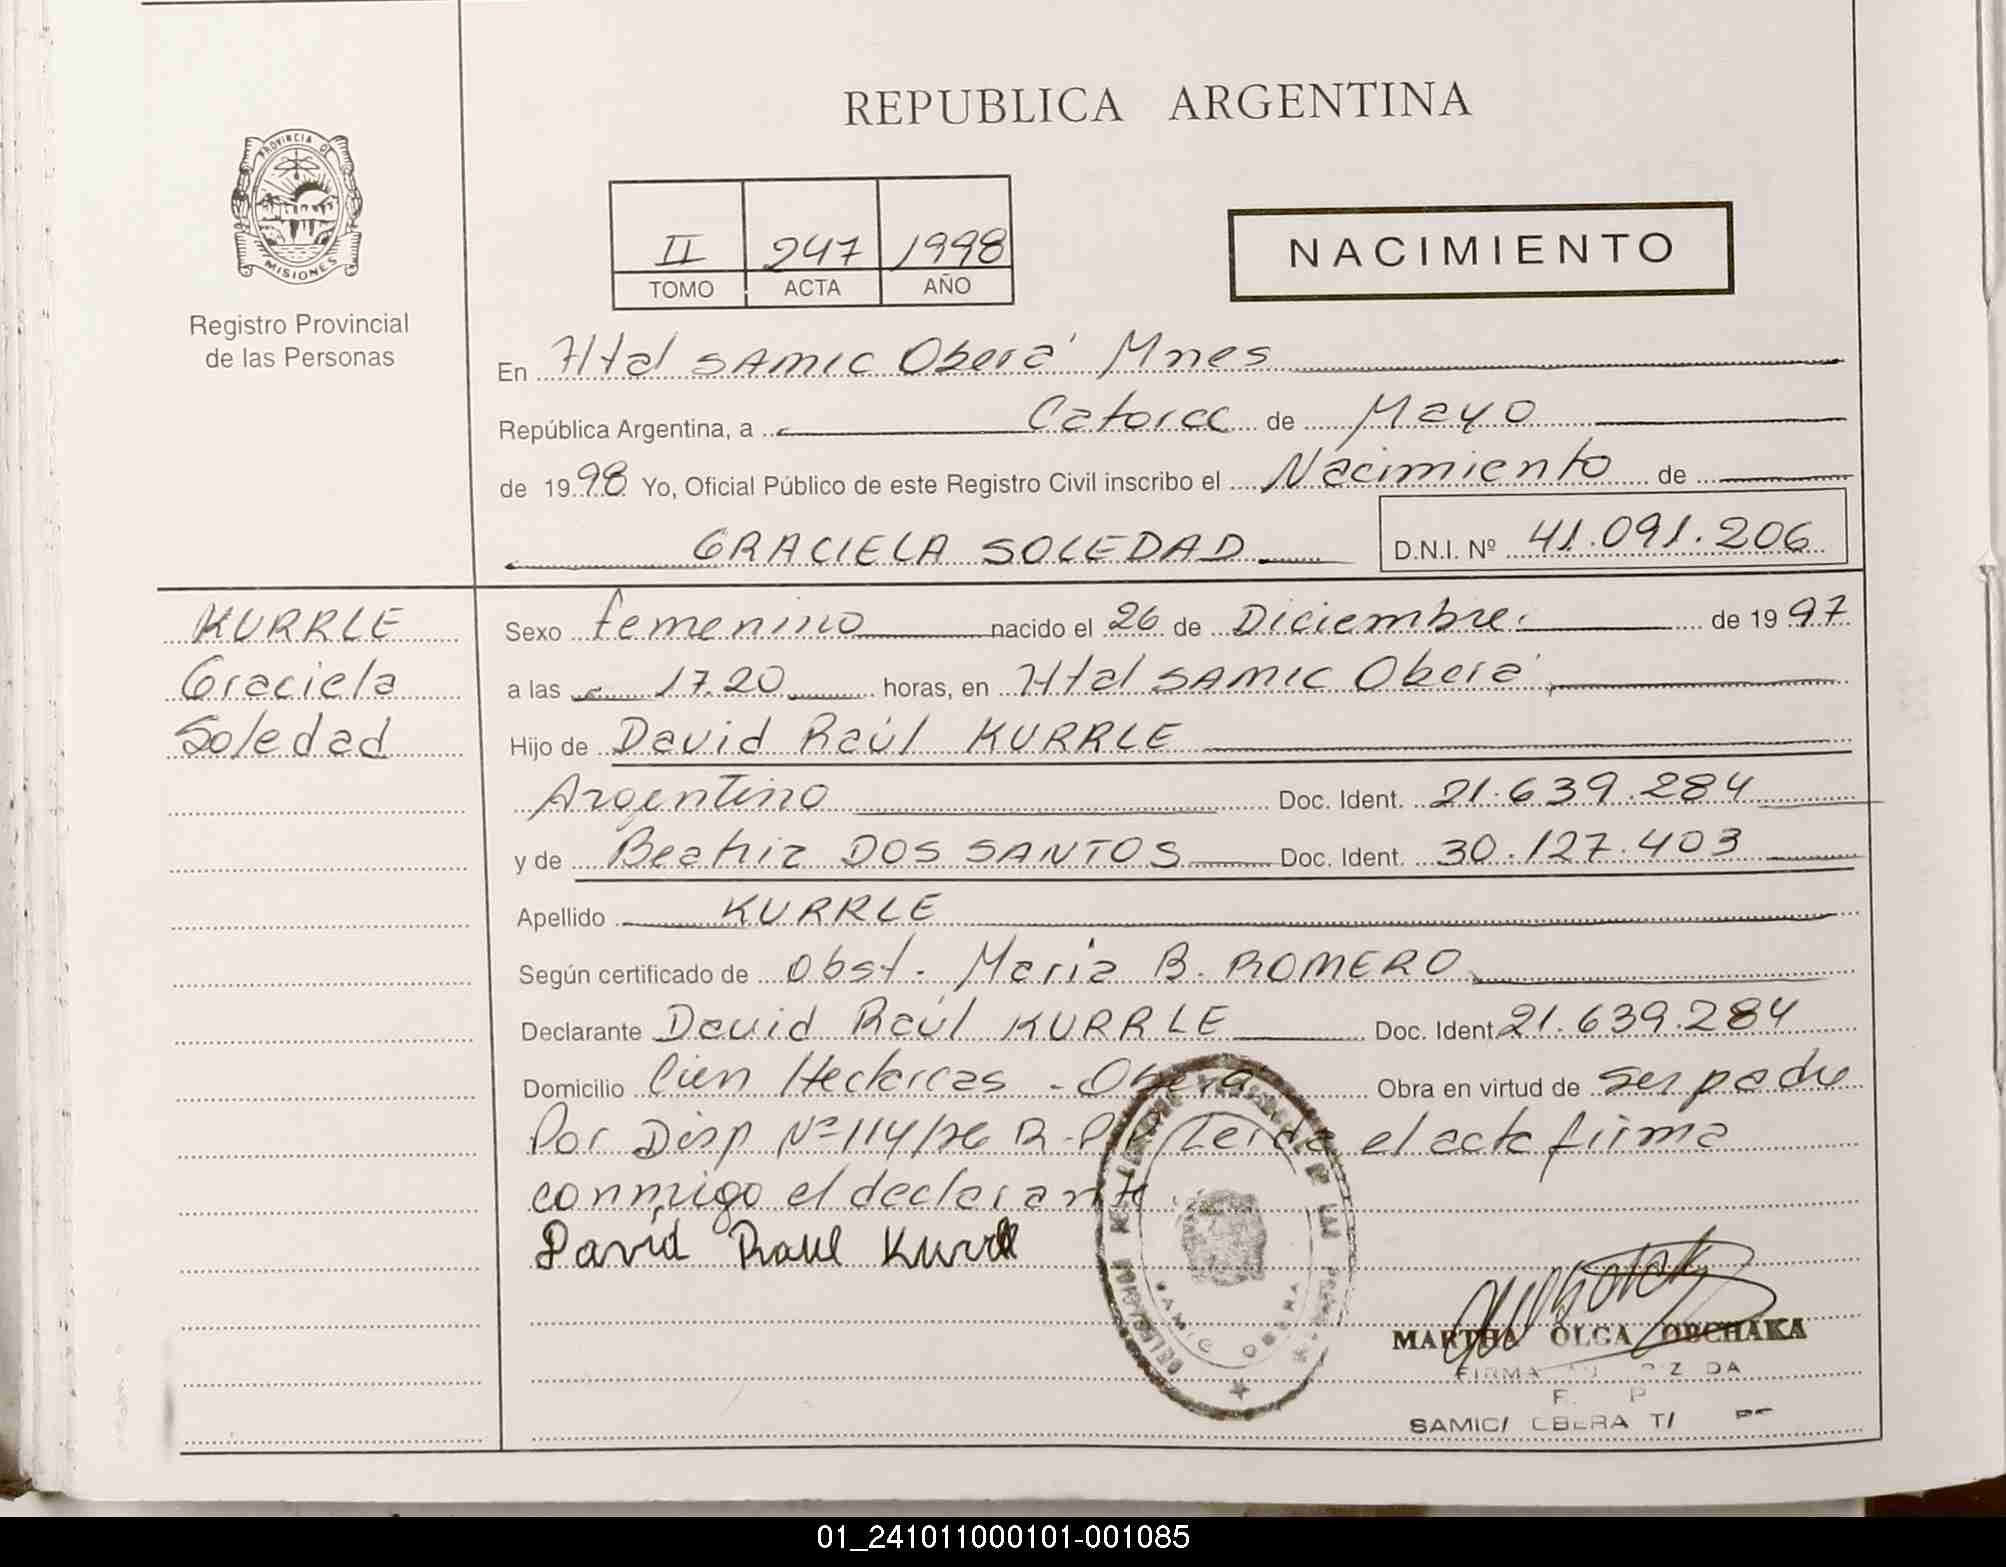 REPUBLICA ARGENTINA
PROVINCIA DE
MISIONES
Registro Provincial
de las Personas
II 247 1998
TOMO ACTA AÑO
NACIMIENTO
En Htal SAMIC Oberá Mnes
República Argentina, a Catorce de Mayo
de 1998 Yo, Oficial Público de este Registro Civil inscribo el Nacimiento de
GRACIELA SOLEDAD D.N.I. Nº 41.091.206
KURRLE
Graciela
Soledad
Sexo femenino nacido el 26 de Diciembre de 1997
a las 17.20 horas, en Htal SAMIC Oberá
Hijo de David Raúl KURRLE
Argentino Doc. Ident. 21.639.284
y de Beatriz DOS SANTOS Doc. Ident. 30.127.403
Apellido KURRLE
Según certificado de Obst. Maria B. ROMERO
Declarante David Raúl KURRLE Doc. Ident. 21.639.284
Domicilio Cien Hectareas - Oberá Obra en virtud de ser padre
Por Disp Nº 114/ R.P.P. Leida el acta firma
conmigo el declarante.
David Raul Kurrle
SAMIC OBERA
MARTHA OLGA OBCHAKA
FIRMA
SAMIC/ OBERA
01_241011000101-001085